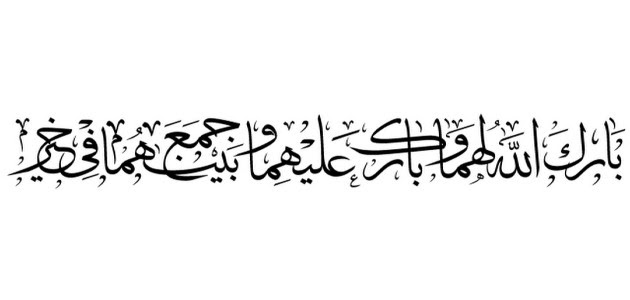 بَارَكَ اللَّهُ لهما وَبارك عَلَيْهِما وَجَمَعَ بَيْنَهُمَا فِي خَيْرٍ